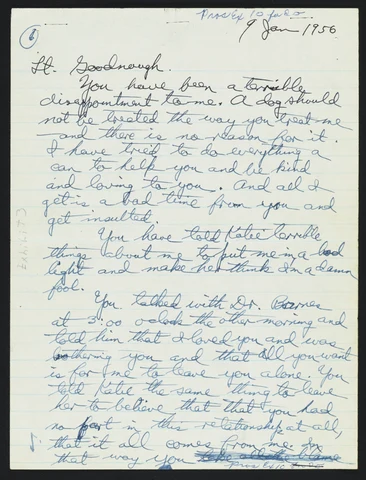 Pros Ex 10 for D.
6
9 Jan 1956
Lt. Goodnough.
You have been a terrible
disappointment to me. A dog should
not be treated the way you treat me
and there is no reason for it.
I have tried to do everything a
can to help you and be kind
and loving to you. And all I
get is a bad time from you and
get insulted.
You have told Katie terrible
things about me to put me in a bad
light and make her think I'm a damn
fool.
You talked with Dr.
at 3:00 oclock the other morning and
told him that I loved you and was
bothering you and that all you want
is for me to leave you alone. You
told Katie the same thing to leave
her to believe that that you had
no part in this relationship at all,
that it all comes from me. In
that way you